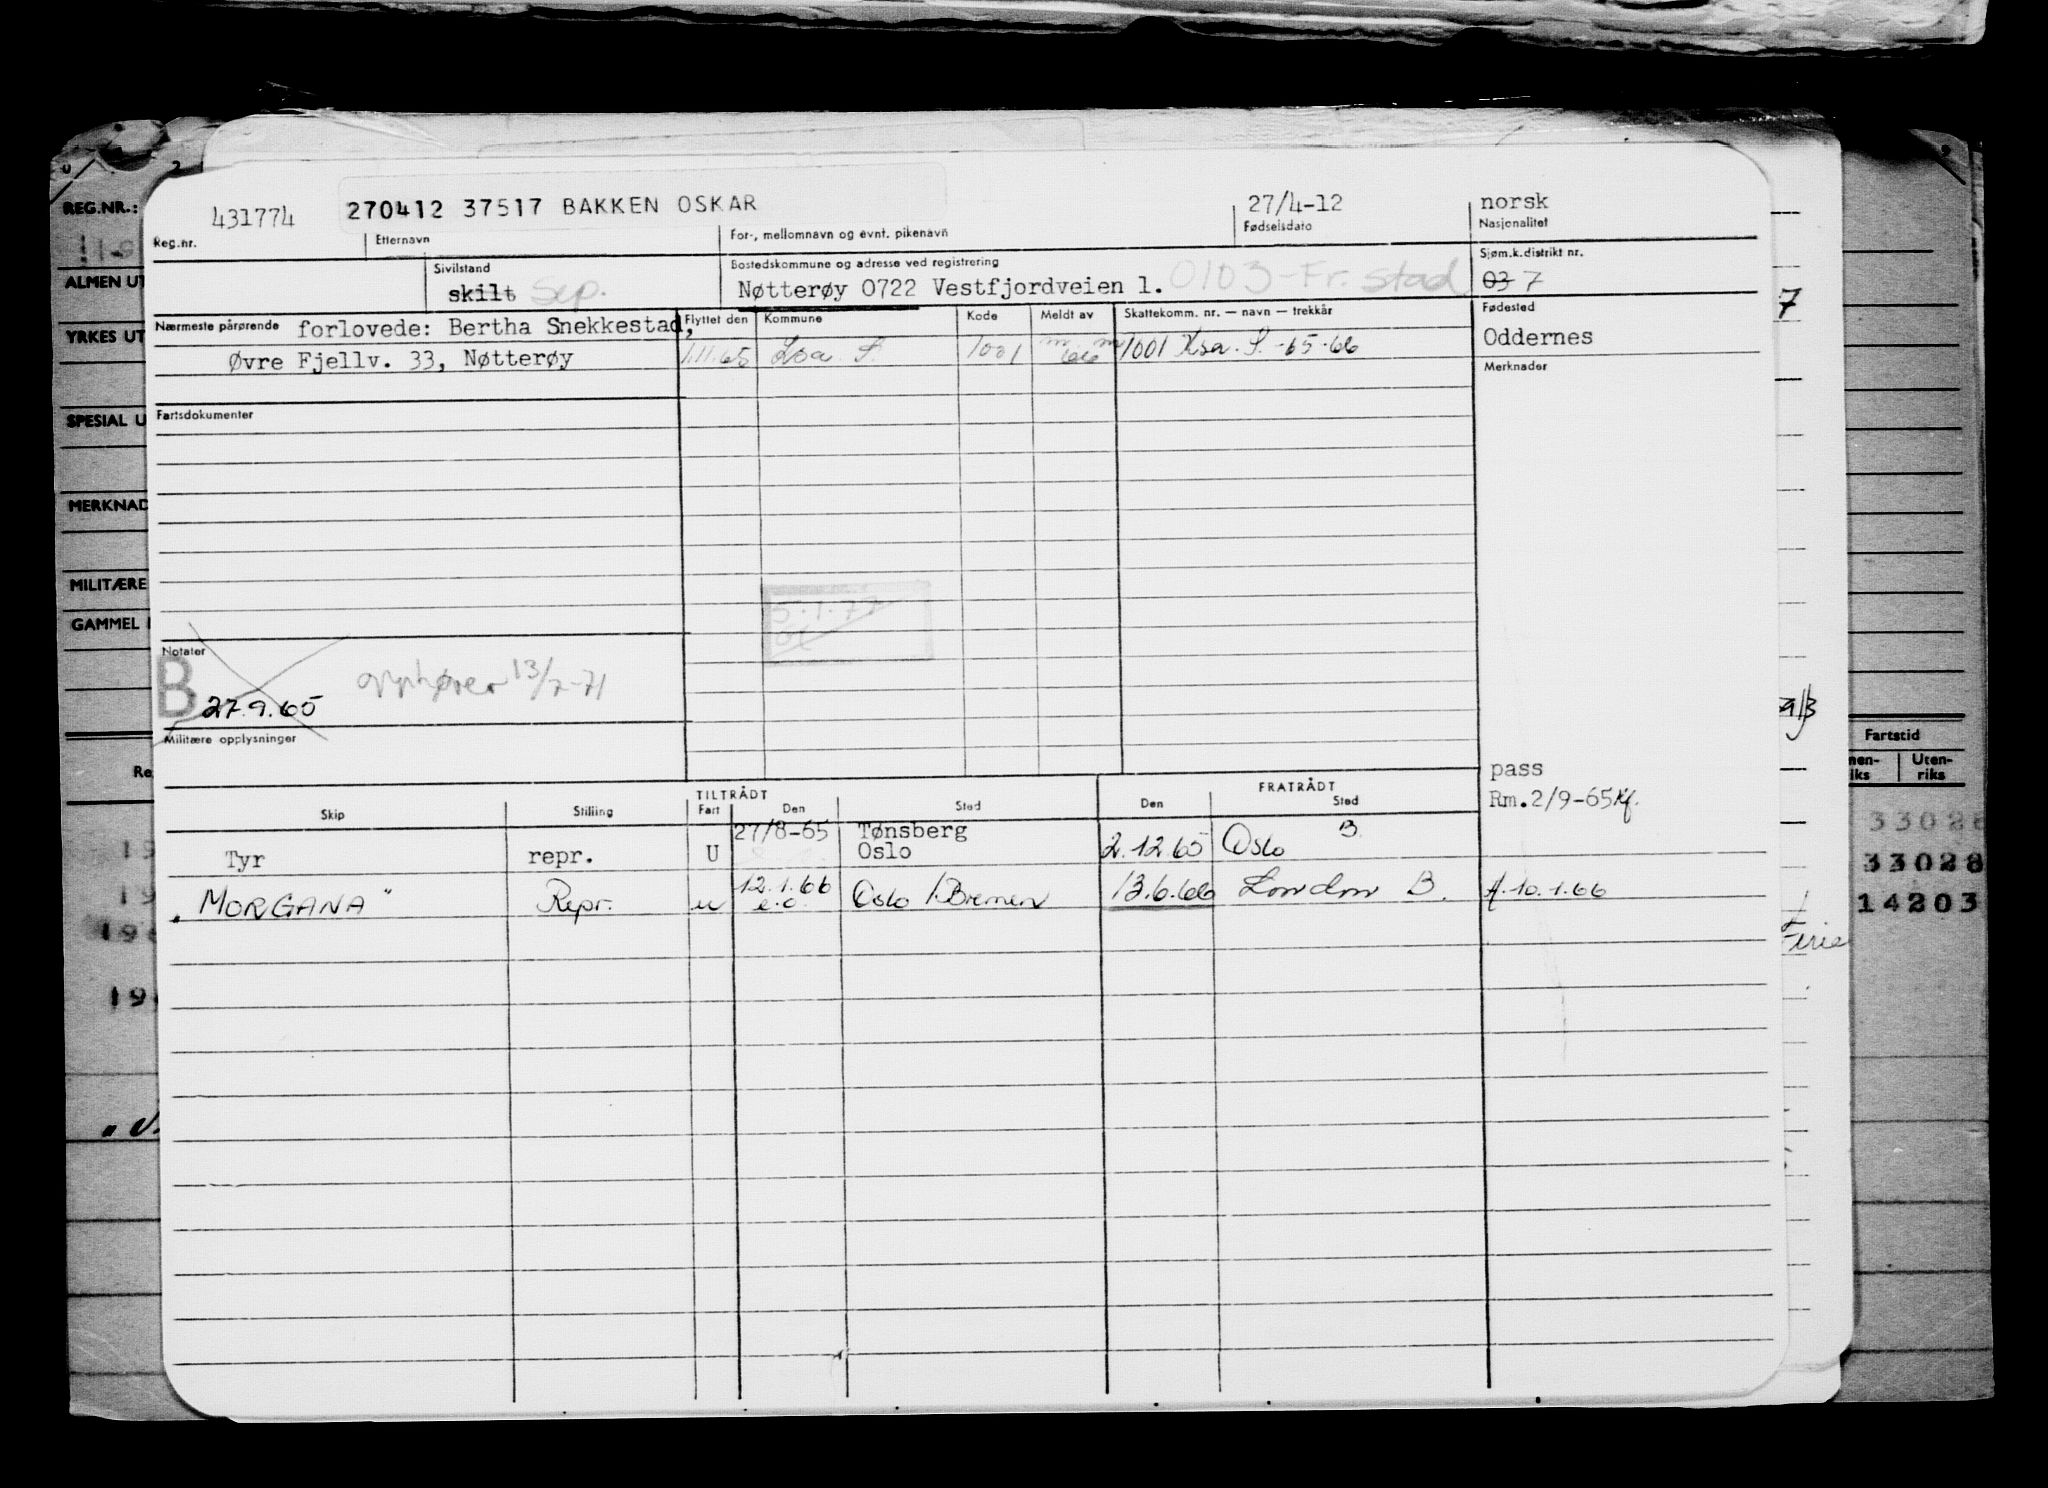 431774 270412 37517 BAKKEN OSKAR 27/4-12 norsk
Reg.nr. Etternavn For-, mellomnavn og evnt. pikenavn Fødselsdato Nasjonalitet
Sivilstand Bostedskommune og adresse ved registrering Sjøm.k.distrikt nr.
skilt Sep. Nøtterøy 0722 Vestfjordveien 1. 0103-Fr.stad 03 7
Nærmeste pårørende forlovede: Bertha Snekkestad, Flyttet den Kommune Kode Meldt av Skattekomm. nr. — navn — trekkår Fødested
Øvre Fjellv. 33, Nøtterøy 1.11.65 1001 1001 Ksa. S. -65-66 Oddernes
Merknader
Fartsdokumenter
5.1.77
Notater
B 27.9.65 opphører 13/7-71
Militære opplysninger
pass
Rm.2/9-65
TILTRÅDT FRATRÅDT
Skip Stilling Fart Den Sted Den Sted
27/8-65 Tønsberg B.
Tyr repr. U Oslo 2.12.65 Oslo
"MORGANA" Repr. u 12.1.66 Oslo/Bremen 13.6.66 London B. 10.1.66
e.o.
REG.NR.:
ALMEN UT
YRKES UT
SPESIAL U
MERKNAD
MILITÆRE
GAMMEL
7
Fartstid
Uten-
riks
33028
33028
14203
Ferie